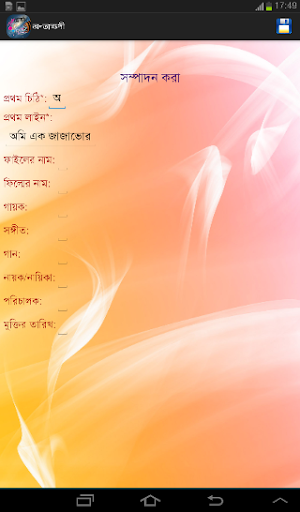 17:49
অন্তাক্ষরী
সম্পাদন করা
প্রথম চিঠি*: অ
প্রথম লাইন*:
অমি এক জাজাভোর
ফাইলের নাম:
ফিল্মের নাম:
গায়ক:
সঙ্গীত:
গান:
নায়ক/নায়িকা:
পরিচালক:
মুক্তির তারিখ: